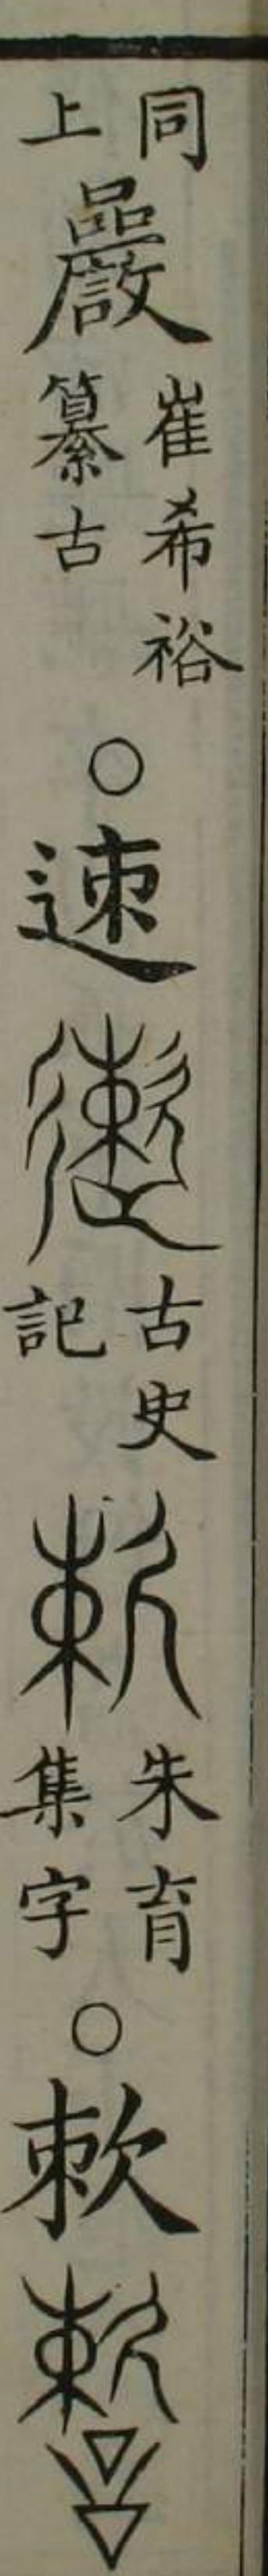 同上
崔希裕纂古
○速
古史記
朱育集字
○欶